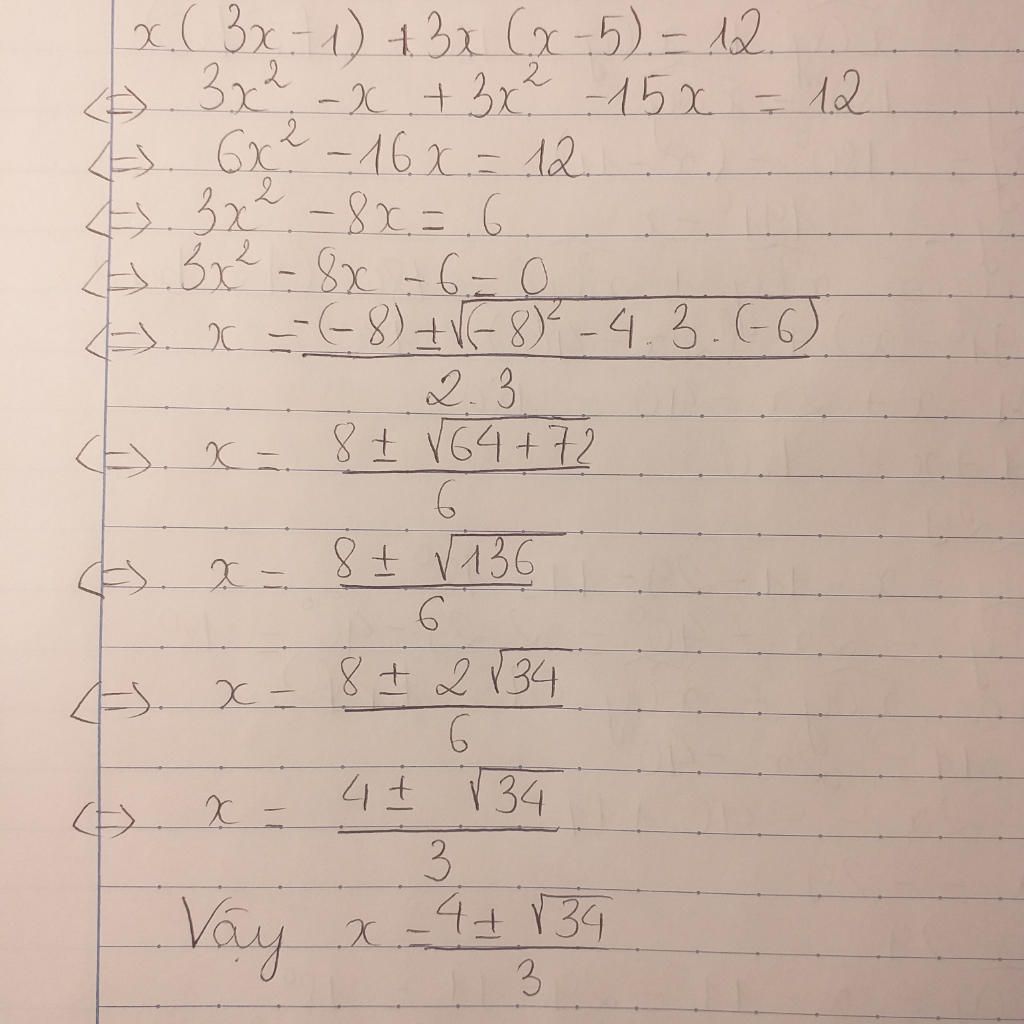 x(3x-1)+3x(x-5)=12
⇔ 3x² - x + 3x² - 15x = 12
⇔ 6x² - 16x = 12
⇔ 3x² - 8x = 6
⇔ 3x² - 8x - 6 = 0
⇔ x = (-(-8) ± √((-8)² - 4.3.(-6)))/(2.3)
⇔ x = (8 ± √(64+72))/6
⇔ x = (8 ± √136)/6
⇔ x = (8 ± 2√34)/6
⇔ x = (4 ± √34)/3
Vậy x = (4 ± √34)/3